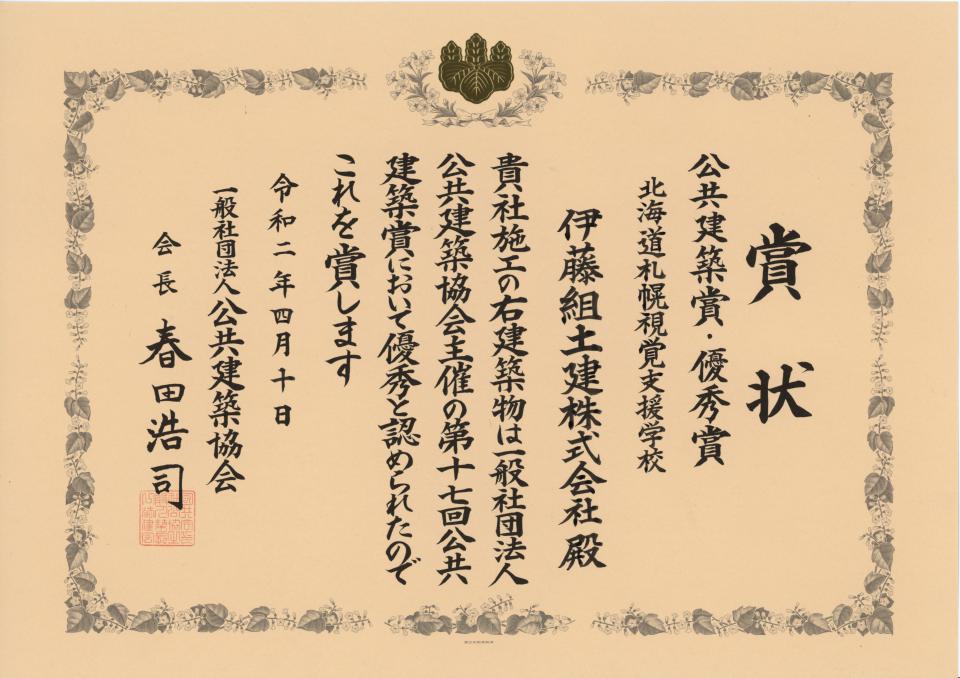 賞状
公共建築賞・優秀賞
北海道札幌視覚支援学校
伊藤組土建株式会社殿
貴社施工の右建築物は一般社団法人
公共建築協会主催の第十七回公共
建築賞において優秀と認められたので
これを賞します
令和二年四月十日
一般社団法人公共建築協会
会長 春田浩司